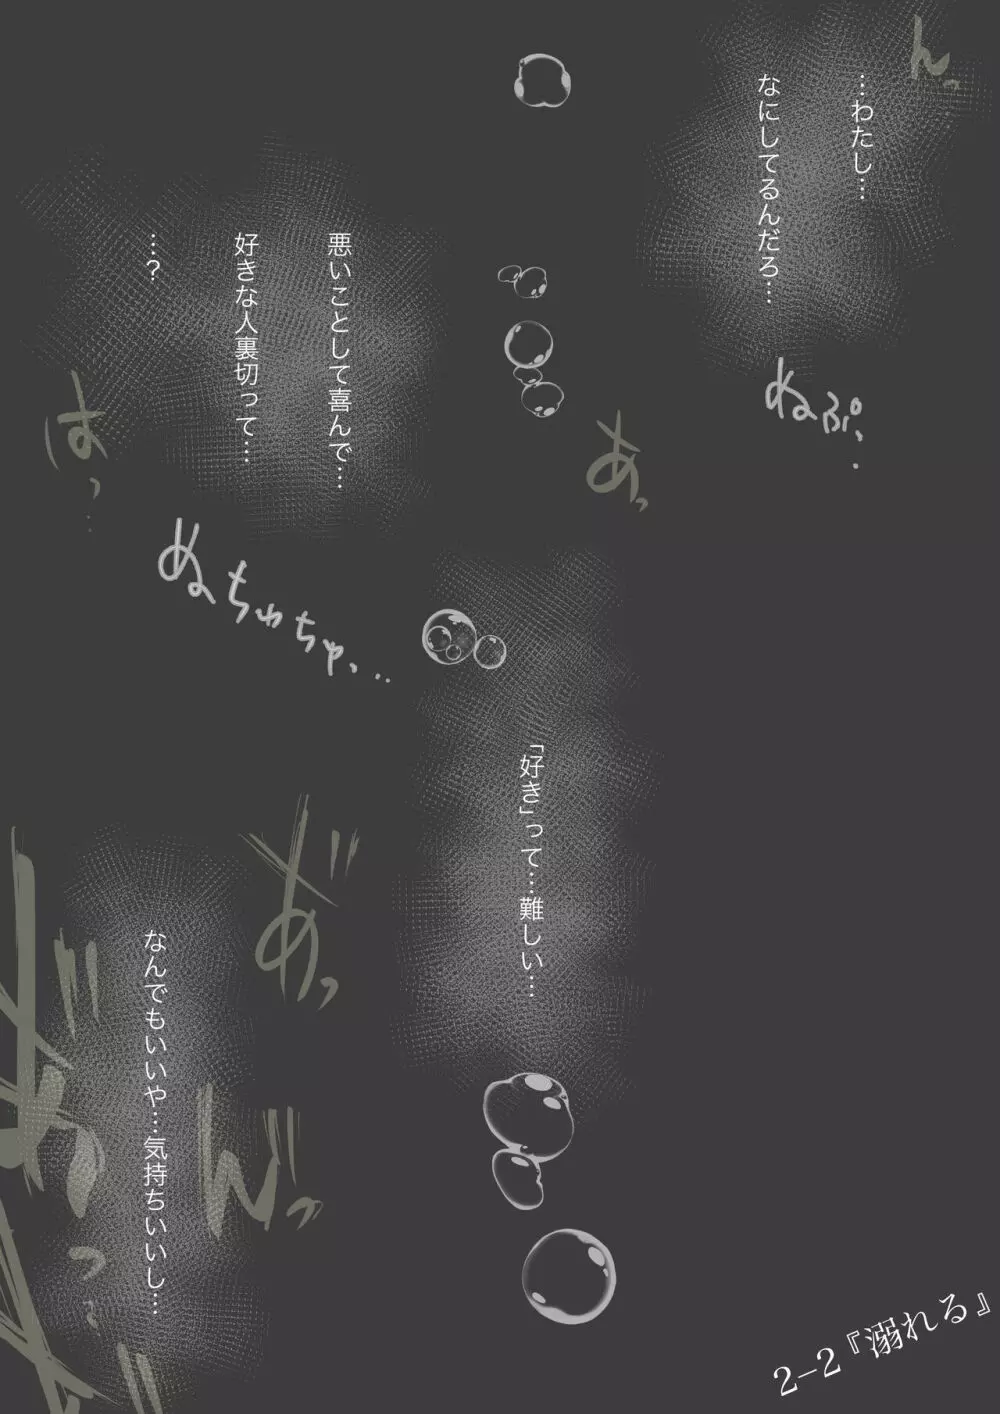 んっ
…わたし…
なにしてるんだろ…
ねぷ、.
あっ
悪いことして喜んで…
好きな人裏切って…
…?
はっ…
ぬちゅちゅ、…
「好き」って…難しい…
あ゛っ
なんでもいいや…気持ちいいし…
ん゛っ
2-2『溺れる』